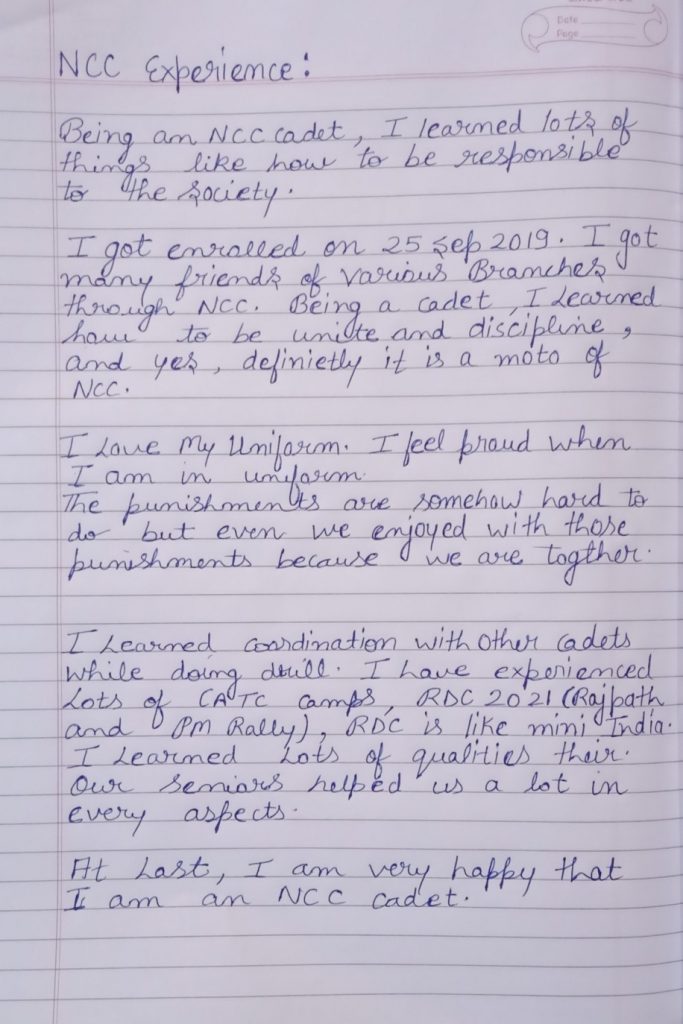 Date
Page
NCC Experience:
Being an NCC cadet, I learned lots of
things like how to be responsible
to the society.
I got enrolled on 25 Sep 2019. I got
many friends of various Branches
through NCC. Being a cadet, I Learned
how to be unite and discipline,
and yes, definietly it is a moto of
NCC.
I Love My Uniform. I feel proud when
I am in uniform.
The punishments are somehow hard to
do but even we enjoyed with those
punishments because we are togther.
I Learned coordination with other cadets
while doing drill. I have experienced
Lots of CATC camps, RDC 2021 (Rajpath
and PM Rally), RDC is like mini India.
I Learned Lots of qualities their.
Our seniors helped us a lot in
every aspects.
At Last, I am very happy that
I am an NCC cadet.